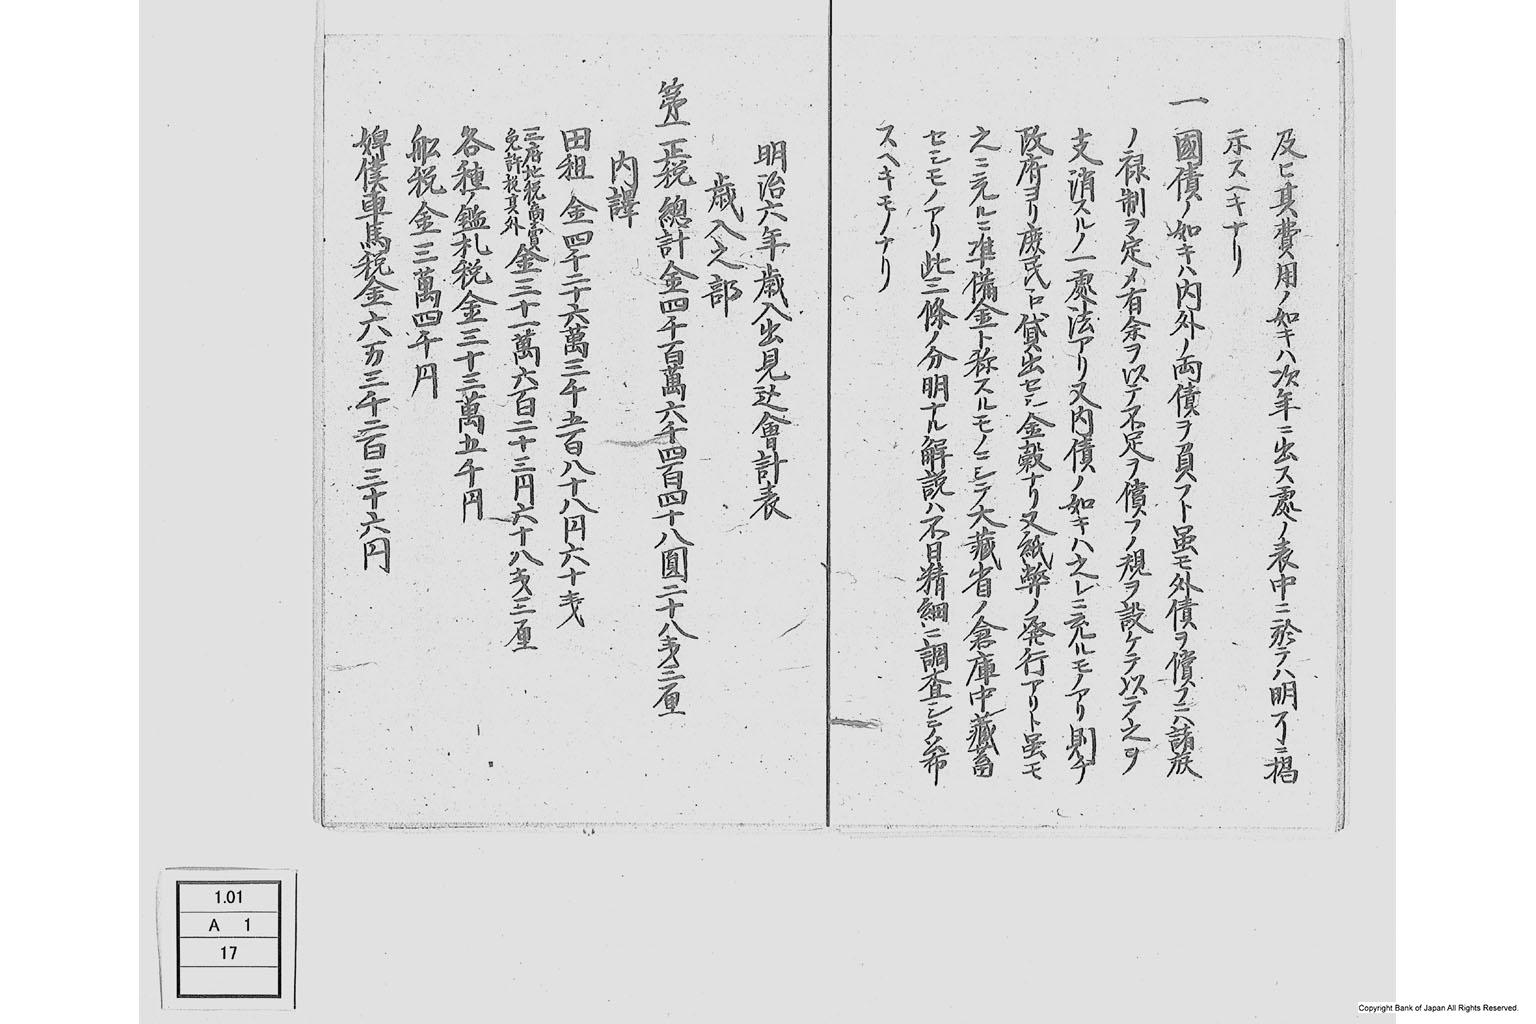 及ヒ其費用ノ如キハ次年ニ出ス處ノ表中ニ於テハ明了ニ掲
示スヘキナリ
一
國債ノ如キハ内外ノ両債ヲ負フト虽モ外債ヲ償フニハ諸族
ノ禄制ヲ定メ有余ヲ以テ不足ヲ償フノ規ヲ設ケテ以テ之ヲ
支消スルノ一處法アリ又内債ノ如キハ之レニ充ルモノアリ則チ
政府ヨリ庶民ニ貸出セシ金穀ナリ又紙弊ノ発行アリト虽モ
之ニ充ルニ準備金ト称スルモノニシテ大藏省ノ倉庫中藏畜
セシモノアリ此三條ノ分明ナル解説ハ不日精細ニ調査シテ公布
スヘキモノナリ
明治六年歳入出見込會計表
歳入之部
第一正税 總計金四千百萬六千四百四十八圓二十八銭二厘
内譯
田租 金四千二十六萬三千五百八十八円六十銭
三府地税商賣
免許税其外 金三十一萬六百二十三円六十八銭三厘
各種ノ鑑札税金三十三萬五千円
舩税金三萬四千円
婢僕車馬税金六万三千二百三十六円
1.01
A 1
17
Copyright Bank of Japan All Rights Reserved.